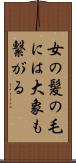 女の髪の毛
には大象も
繋がる